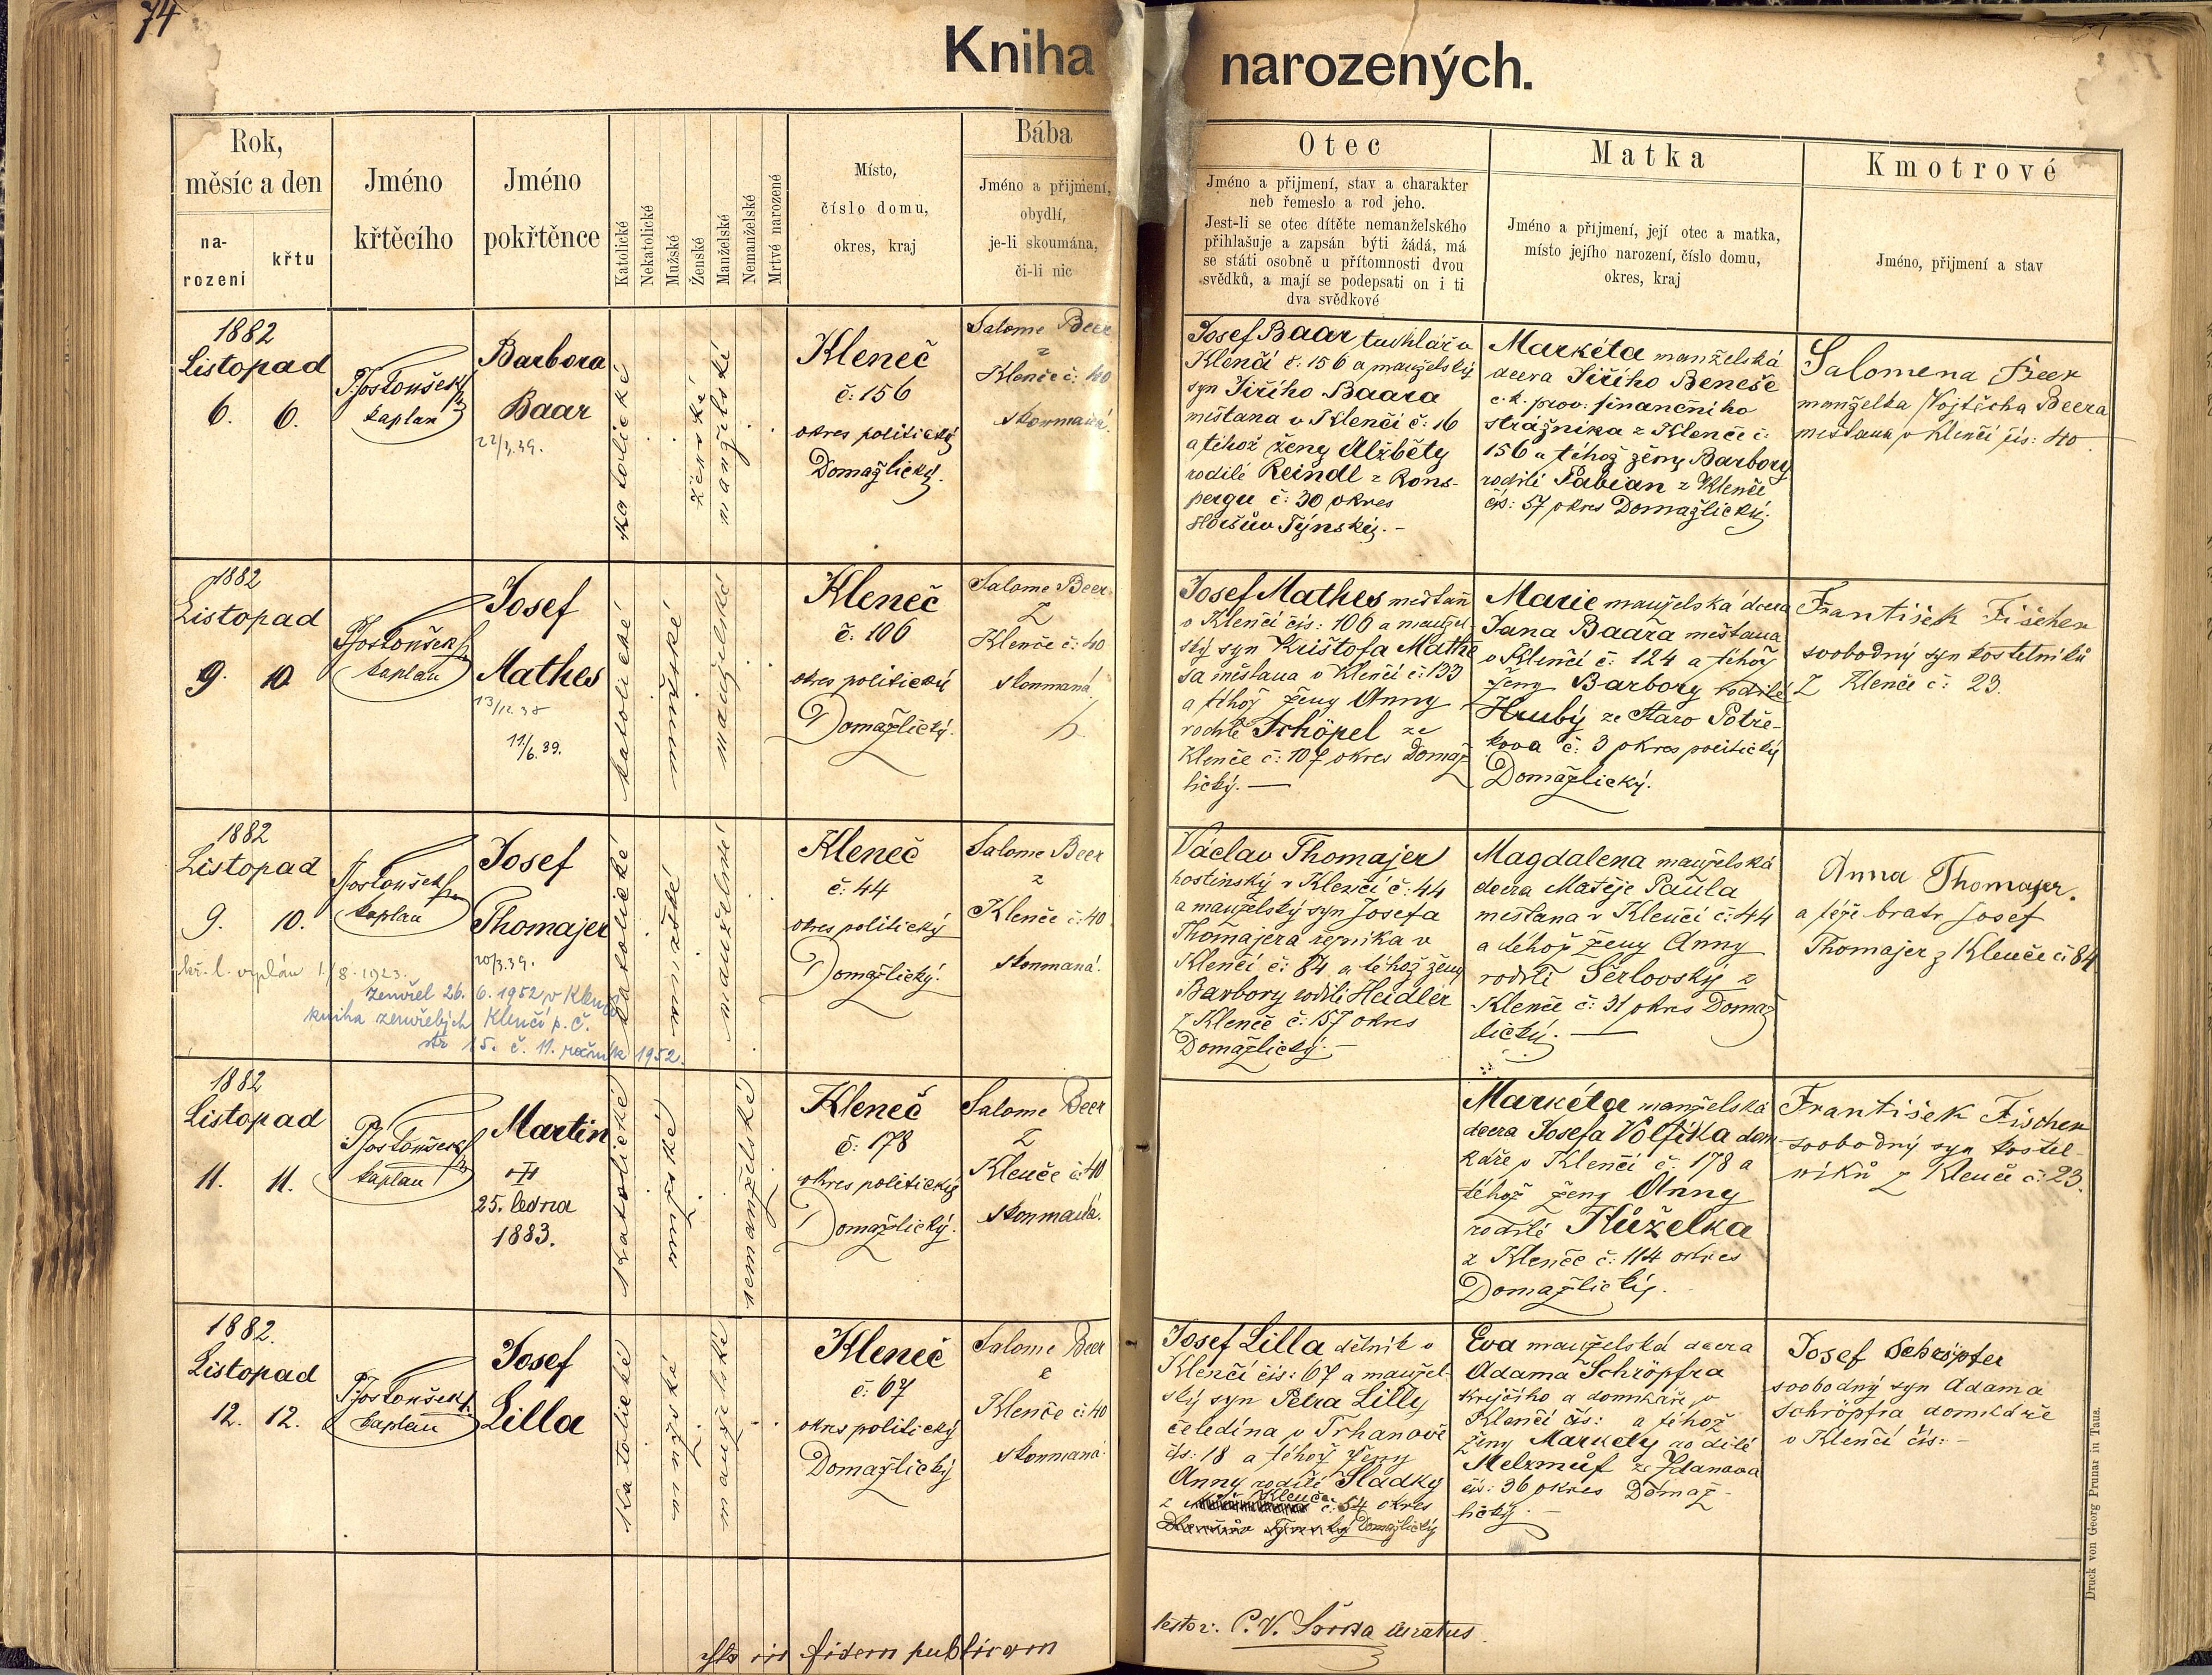 74
Kniha narozených.
Rok,
měsíc a den
na-
rození
křtu
Jméno
křtěcího
Jméno
pokřtěnce
Katolické
Nekatolické
Mužské
Ženské
Manželské
Nemanželské
Mrtvě narozené
Místo,
číslo domu,
okres, kraj
Bába
Jméno a přijmení,
obydlí,
je-li skoumána,
či-li nic
Otec
Jméno a přijmení, stav a charakter
neb řemeslo a rod jeho.
Jest-li se otec dítěte nemanželského
přihlašuje a zapsán býti žádá, má
se státi osobně u přítomnosti dvou
svědků, a mají se podepsati on i ti
dva svědkové
Matka
Jméno a přijmení, její otec a matka,
místo jejího narození, číslo domu,
okres, kraj
Kmotrové
Jméno, přijmení a stav
1882
Listopad
6. 6.
kaplan
Barbora
Baar
22/3.39.
katolické
ženské
manželské
Kleneč
č: 156
okres politický
Domažlický.
Salome Beer
z
Klenče č: 40
skoumaná.
Josef Baar truhlář v
Klenčí č: 156 a manželský
syn Jiřího Baara
měšťana v Klenčí č: 16
a téhož ženy Alžběty
rodilé Reindl z Rons-
pergu č: 30 okres
Horšův Týnský. -
Markéta manželská
dcera Jiřího Beneše
c. k. prov: finančního
strážníka z Klenče č:
156 a téhož ženy Barbory
rodilé Pabian z Klenče
čís: 57 okres Domažlický.
Salomena Beer
manželka Vojtěcha Beera
měšťana v Klenčí čís: 40
1882
Listopad
9. 10.
kaplan
Josef
Mathes
13/12.38
11/6.39.
katolické
mužské
manželské
Kleneč
č: 106
okres politický
Domažlický.
Salome Beer
z
Klenče č: 40
skoumaná
Josef Mathes měšťan
v Klenčí čís: 106 a manžel-
ský syn Krištofa Mathe
sa měšťana v Klenčí č: 133
a téhož ženy Anny
rodilé Schöpel ze
Klenče č: 107 okres Domaž
lický. —
Marie manželská dcera
Jana Baara měšťana
v Klenčí č: 124 a téhož
ženy Barbory rodilé
Hrubý ze Staro Potře-
kova č: 3 okres politický
Domažlický.
František Fišcher
svobodný syn kostelníků
z Klenče č: 23.
1882
Listopad
9. 10.
kaplan
Josef
Thomajer
20/3.39.
1/8. 1923.
Zemřel 26. 6. 1952 v Klenčí
kniha zemřelých Klenčí p. Č.
str 15. č. 11. ročník 1952.
katolické
manželské
Kleneč
č: 44
okres politický
Domažlický.
Salome Beer
z
Klenče č: 40
skoumaná.
Václav Thomajer
hostinský v Klenčí č: 44
a manželský syn Josefa
Thomajera řezníka v
Klenčí č: 84 a téhož ženy
Barbory rodilé Heidler
z Klenče č: 157 okres
Domažlický. —
Magdalena manželská
dcera Matěje Paula
měšťana v Klenčí č: 44
a téhož ženy Anny
rodilé Šerlovský z
Klenče č: 31 okres Domaž
lický. —
Anna Thomajer.
a její bratr Josef
Thomajer z Klenče č: 84
1882
Listopad
11. 11.
kaplan
Martin
25. ledna
1883.
katolické
mužské
nemanželské
Kleneč
č: 178
okres politický
Domažlický.
Salome Beer
z
Klenče č: 40
skoumaná.
Markéta manželská
dcera Josefa Volfíka dom
káře v Klenčí č: 178 a
téhož ženy Anny
rodilé Kůželka
z Klenče č: 114 okres
Domažlický.
František Fischer
svobodný syn kostel-
níků z Klenče č: 23.
1882.
Listopad
12. 12.
kaplan
Josef
Lilla
Katolické
mužské
manželské
Kleneč
č: 67
okres politický
Domažlický
Salome Beer
Klenče č: 40
skoumaná
Josef Lilla dělník v
Klenčí čís: 67 a manžel-
ský syn Petra Lilly
čeledína v Trhanově
čís: 18 a téhož ženy
Anny rodilé Sladký
z Klenče č: 54 okres
Domažlický
Eva manželská dcera
Adama Schröpfra
krejčího a domkáře v
Klenčí čís: a téhož
ženy Markéty rodilé
Melzmuf ze Ždanova
čís: 36 okres Domaž-
lický —
Josef Schröpfer
svobodný syn Adama
Schröpfra domkáře
v Klenčí čís: -
in fidem publicam
testor: P. V. Svída curatus.
Druck von Georg Prunar in Taus.